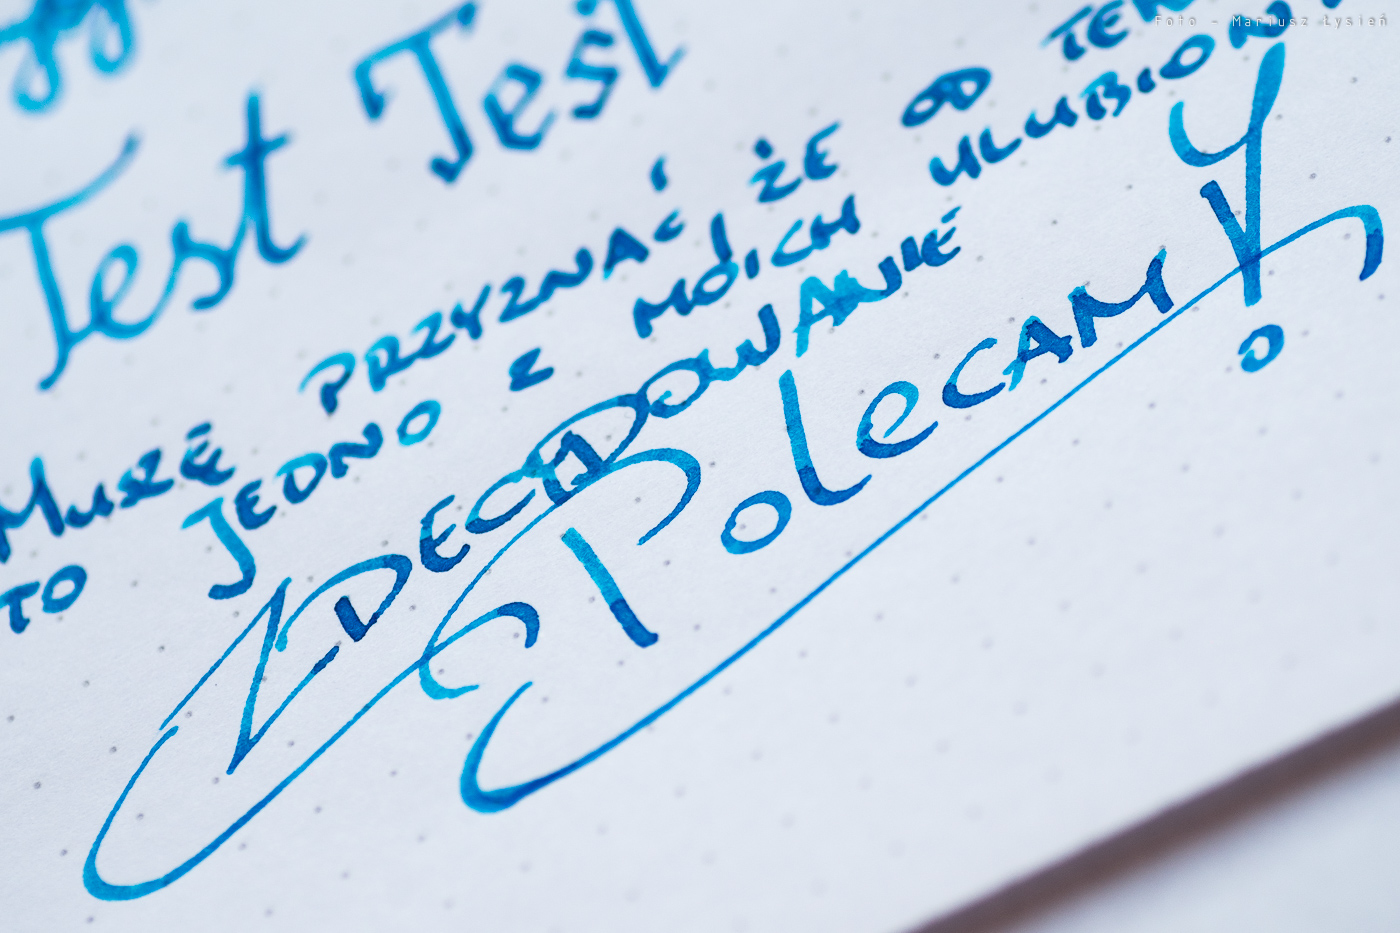 Foto - Mariusz Łysień
Test Test
MUSZĘ PRZYZNAĆ, ŻE OD
TO JEDNO Z MOICH ULUBION
ZDECYDOWANIE
POLECAM!